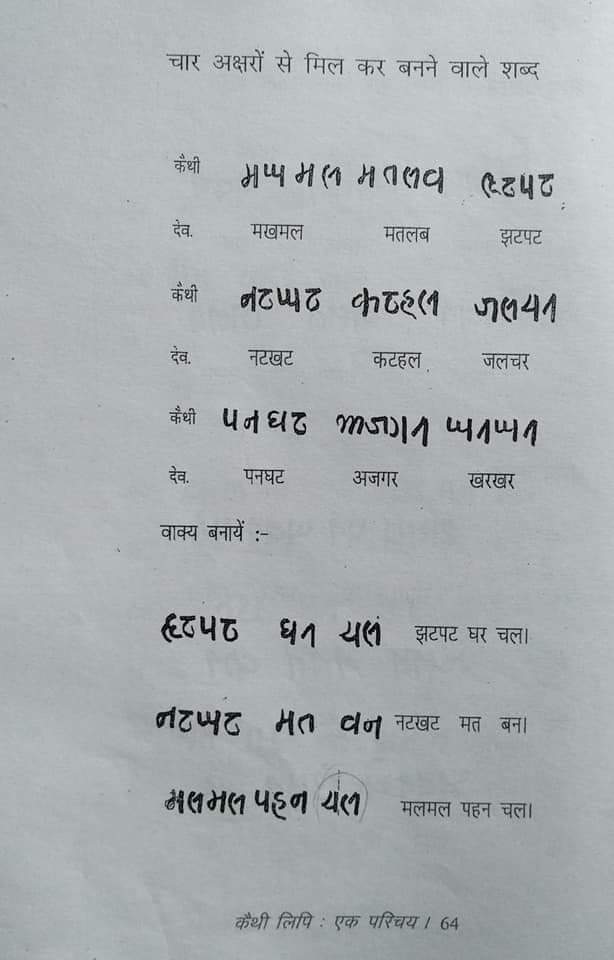 चार अक्षरों से मिल कर बनने वाले शब्द
कैथी 𑂧𑂎𑂧𑂪 𑂧𑂞𑂪𑂥 𑂕𑂗𑂣𑂗
देव. मखमल मतलब झटपट
कैथी 𑂢𑂗𑂎𑂗 𑂍𑂗𑂯𑂪 𑂔𑂪𑂒𑂩
देव. नटखट कटहल जलचर
कैथी 𑂣𑂢𑂐𑂗 𑂃𑂔𑂏𑂩 𑂎𑂩𑂎𑂩
देव. पनघट अजगर खरखर
वाक्य बनायें :-
𑂕𑂗𑂣𑂗 𑂐𑂩 𑂒𑂪 झटपट घर चल।
𑂢𑂗𑂎𑂗 𑂧𑂞 𑂥𑂢 नटखट मत बन।
𑂧𑂪𑂧𑂪 𑂣𑂯𑂢 𑂒𑂪 मलमल पहन चल।
कैथी लिपि : एक परिचय / 64